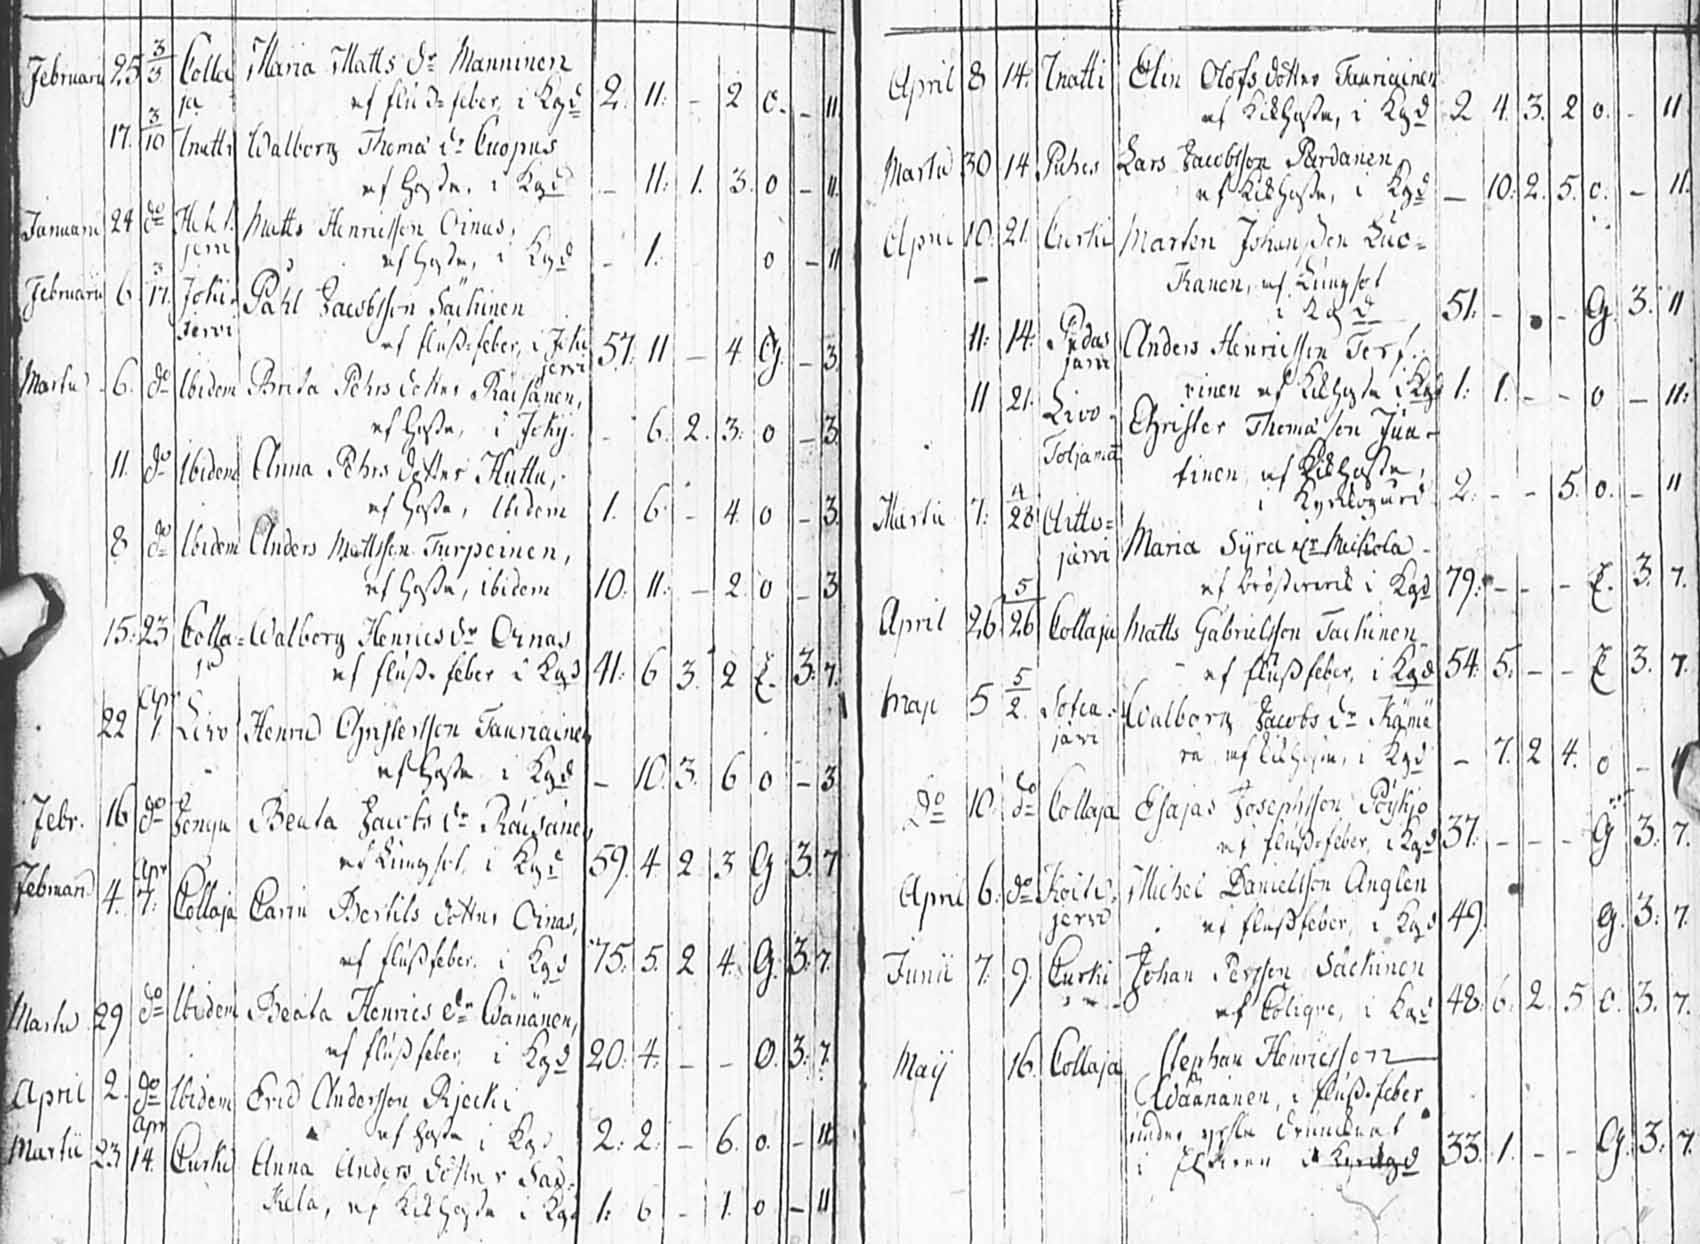 Februari 25 3/3 Colla Maria Matts dr Manninen
ja af fluss feber, i Kgd 2. 11. - 2 o. - 11
17. 3/10 Inatti Walborg Thoma dr Cuopus
af hosta, i Kgd - 11: 1. 3. o - 11.
Januarii 24 do Hets Matts Henricsson Oinas,
jervi af hosta, i Kgd - 1. o - 11
Februarii 6 3/17. Jokij Påhl Jacobsson Säckinen
jervi af fluss feber, i Joki jervi 57. 11 - 4 G. - 3
Martii 6. do Ibidem Brita Pehrs dotter Räisänen,
af hosta, i Jokij. - 6. 2. 3. o - 3.
11. do Ibidem Anna Pehrs dotter Huttu,
af hosta, Ibidem 1. 6 - 4. o - 3.
8 do Ibidem Anders Mattsson Turpeinen,
af hosta, ibidem 10. 11. - 2. o - 3
15. 23 Colla= Walborg Henrics dr Oinas
ja af fluss feber i Kgd 41. 6 3. 2 E. 3. 7.
22 Apr 1 Livo Henric Christersson Tauriainen
af hosta i Kgd - 10. 3. 6 o - 3
Febr. 16 do Jongu Beata Jacobs dr Räisänen
af Lungsot, i Kgd 59. 4. 2. 3 G 3. 7
Februarii 4. Apr 7. Collaja Carin Bertils dotter Oinas,
af fluss feber. i Kgd 75. 5. 2 4. G. 3. 7.
Martii 29 do Ibidem Beata Henrics dr Wänänen,
af fluss feber, i Kgd 20. 4. - - O. 3. 7.
April 2. do Ibidem Eric Andersson Rjecki
af hosta i Kgd 2. 2. - 6. o. - 11
Martii 23 Apr 14. Curki Anna Anders dotter Sar=
kela, af Kikhosta i Kgd 1. 6 - 1. o - 11
April 8 14. Inatti Elin Olofs dotter Tauriainen
af Kikhosta, i Kgd 2 4. 3. 2 o. - 11
Martii 30 14 Puhos Lars Jacobsson Pardanen
af Kikhosta, i Kgd - 10. 2. 5. o. - 11.
April 10. 21. Curki Marten Johansson Luo=
kanen, af Lungsot
i Kgd 51. - - - G. 3. 11
11. 14. Pudas järvi Anders Henricsson Ter
vinen af Kikhosta i Kgd 1. 1. - - o - 11.
11 21. Livo Christer Thomasson Juu=
Toljama tinen af Kikhosta,
i Kyrkogård 2. - - 5. o. - 11
Martii 7. 4/28 Aitto= Maria Syra Mickola
järvi af bröstverk i Kgd 79. - - - E. 3. 7.
April 26 5/26 Collaja Matts Gabrielsson Tackinen
af fluss feber, i Kgd 54. 5. - - E 3. 7.
Maji 5 5/2. Sotca= Walborg Jacobs dr Kämä
järvi rä af Kikhosta, i Kgd - 7. 2 4. o -
Do 10. do Collaja Esajas Josephsson Pöykjo
af fluss feber, i Kgd 37. - - - G 3. 7.
April 6. do Koito= Michel Danielsson Anglen
jervi af fluss feber, i Kgd 49. G. 3. 7.
Junii 7. 9. Curki Johan Persson Säckinen
af Colique, i Kgd 48. 6. 2. 5 o. 3. 7.
Maij 16. Collaja Stephan Henricsson
Wäänänen, i fluss feber
under
i Kyrkgd 33. 1. - - G. 3. 7.